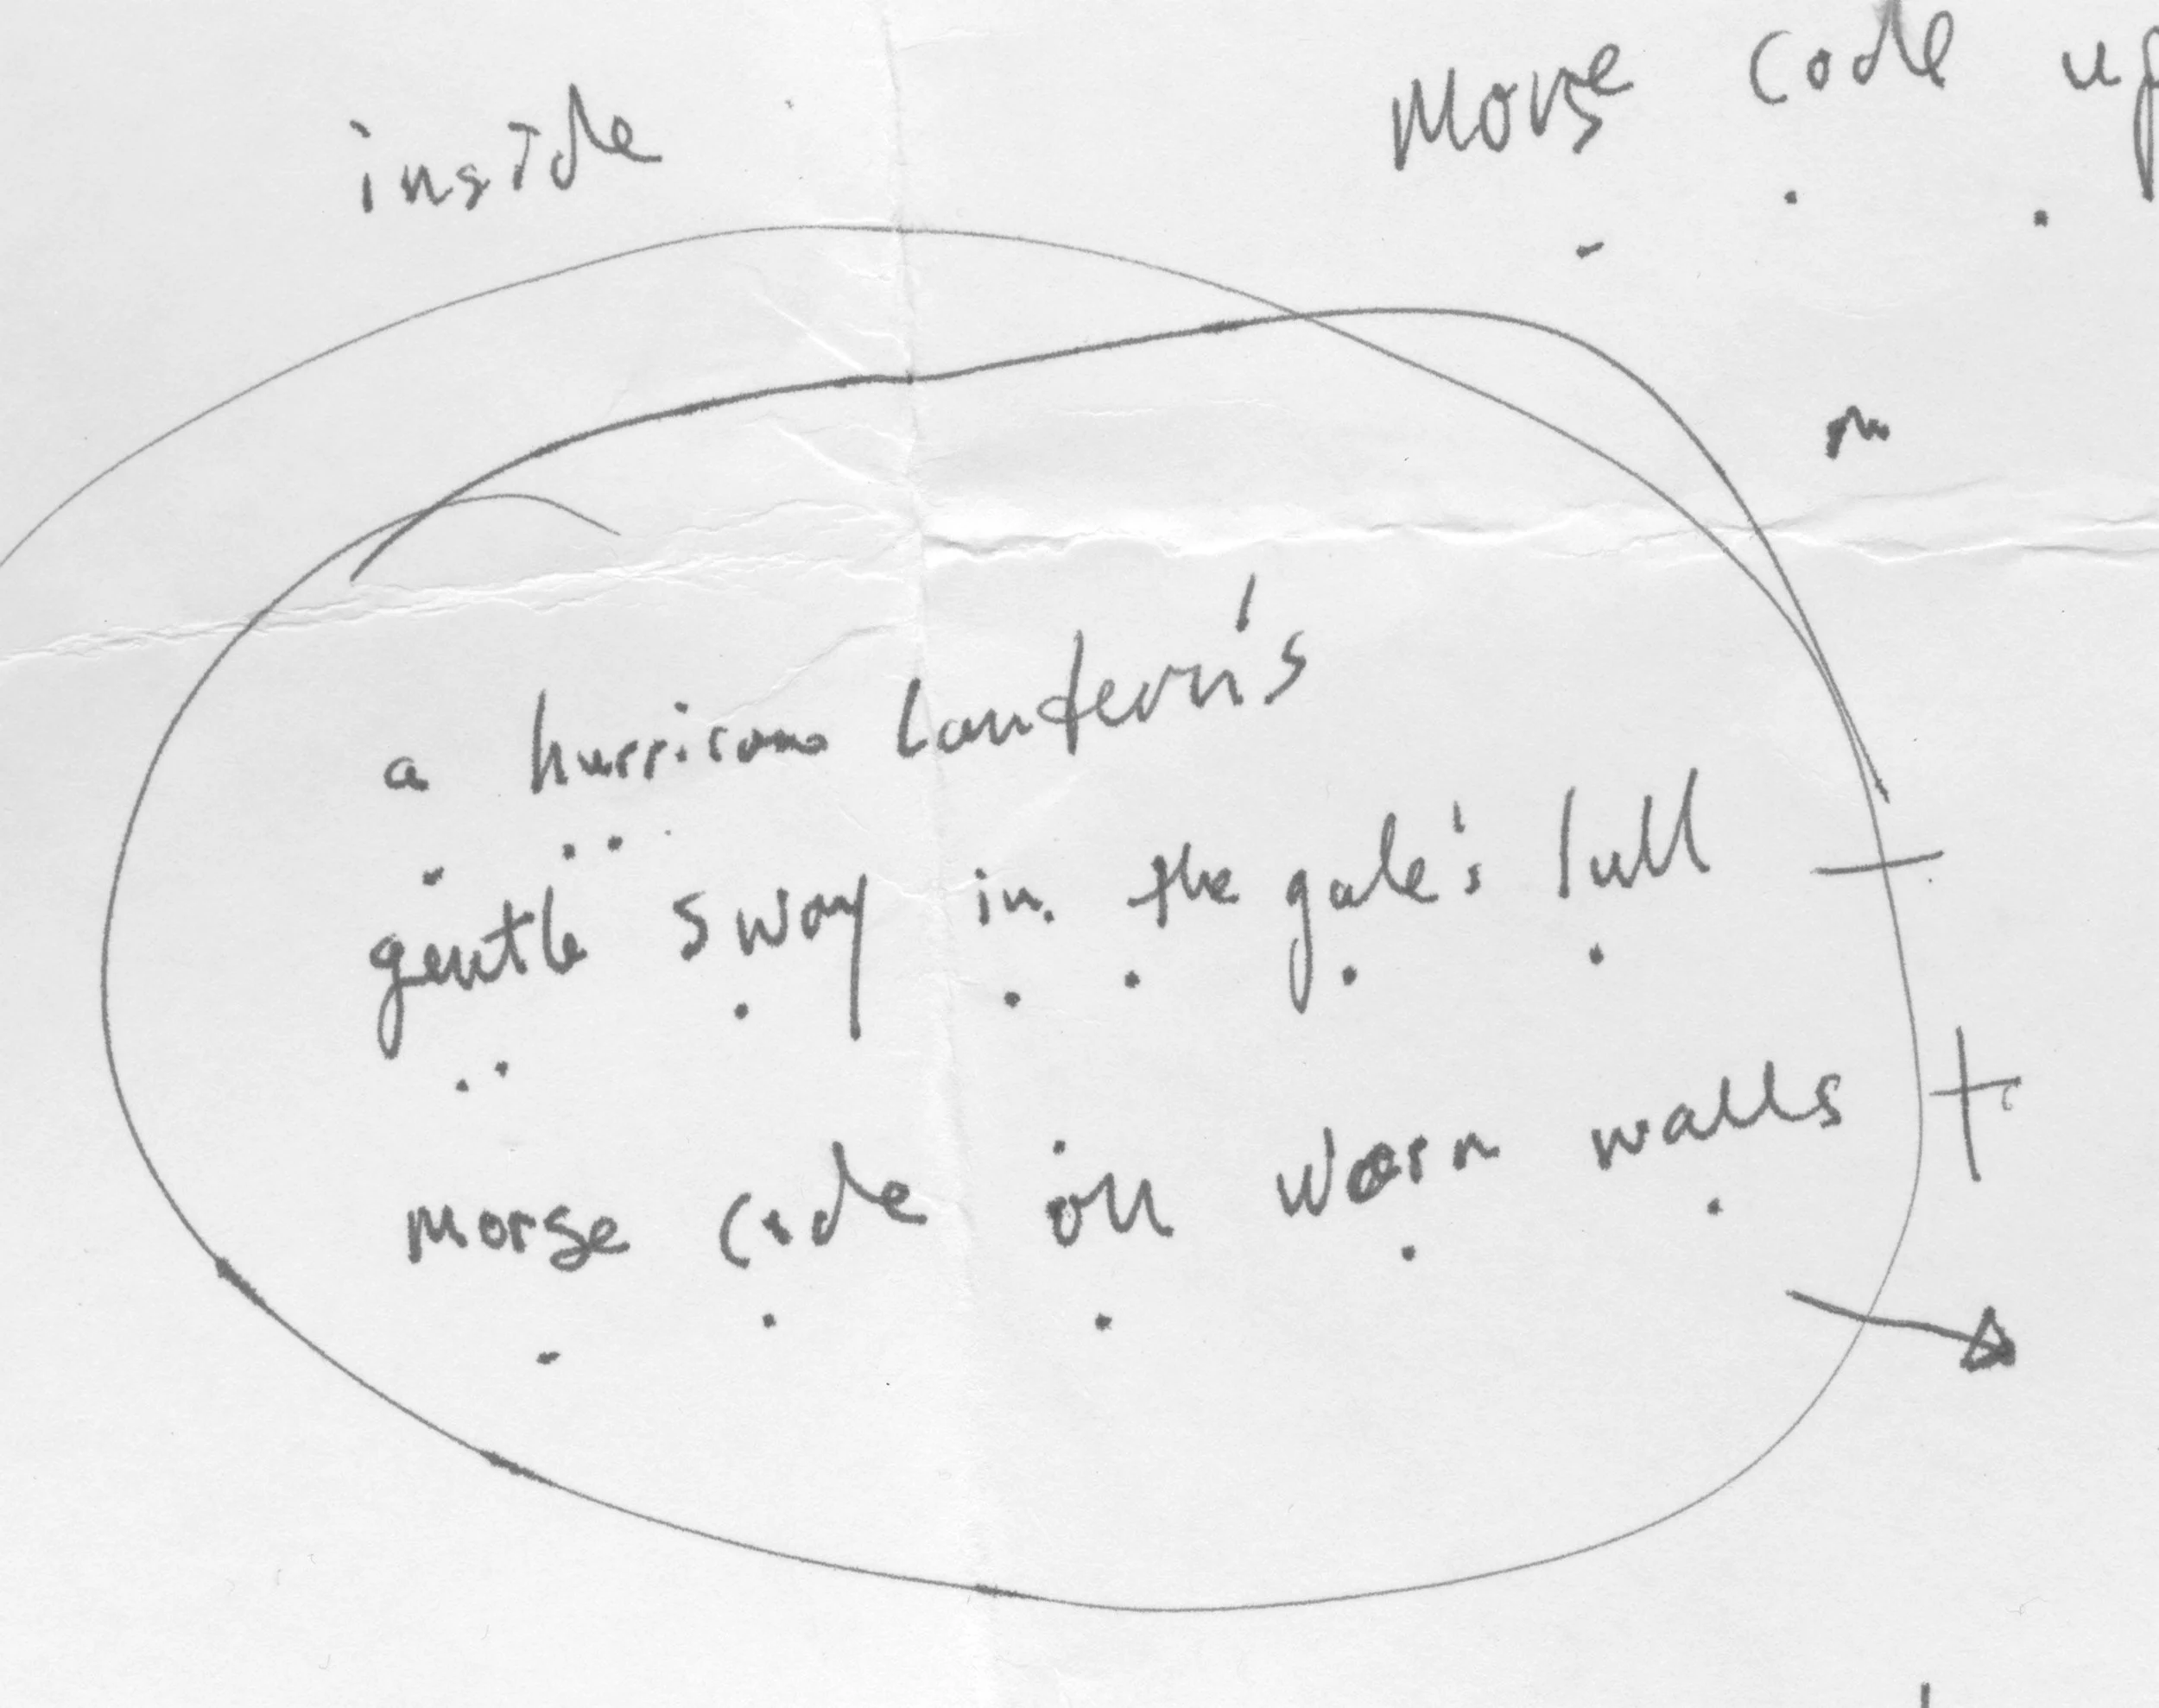 inside
Morse code up
a hurricane lantern's
gentle sway in the gale's lull
morse code on worn walls